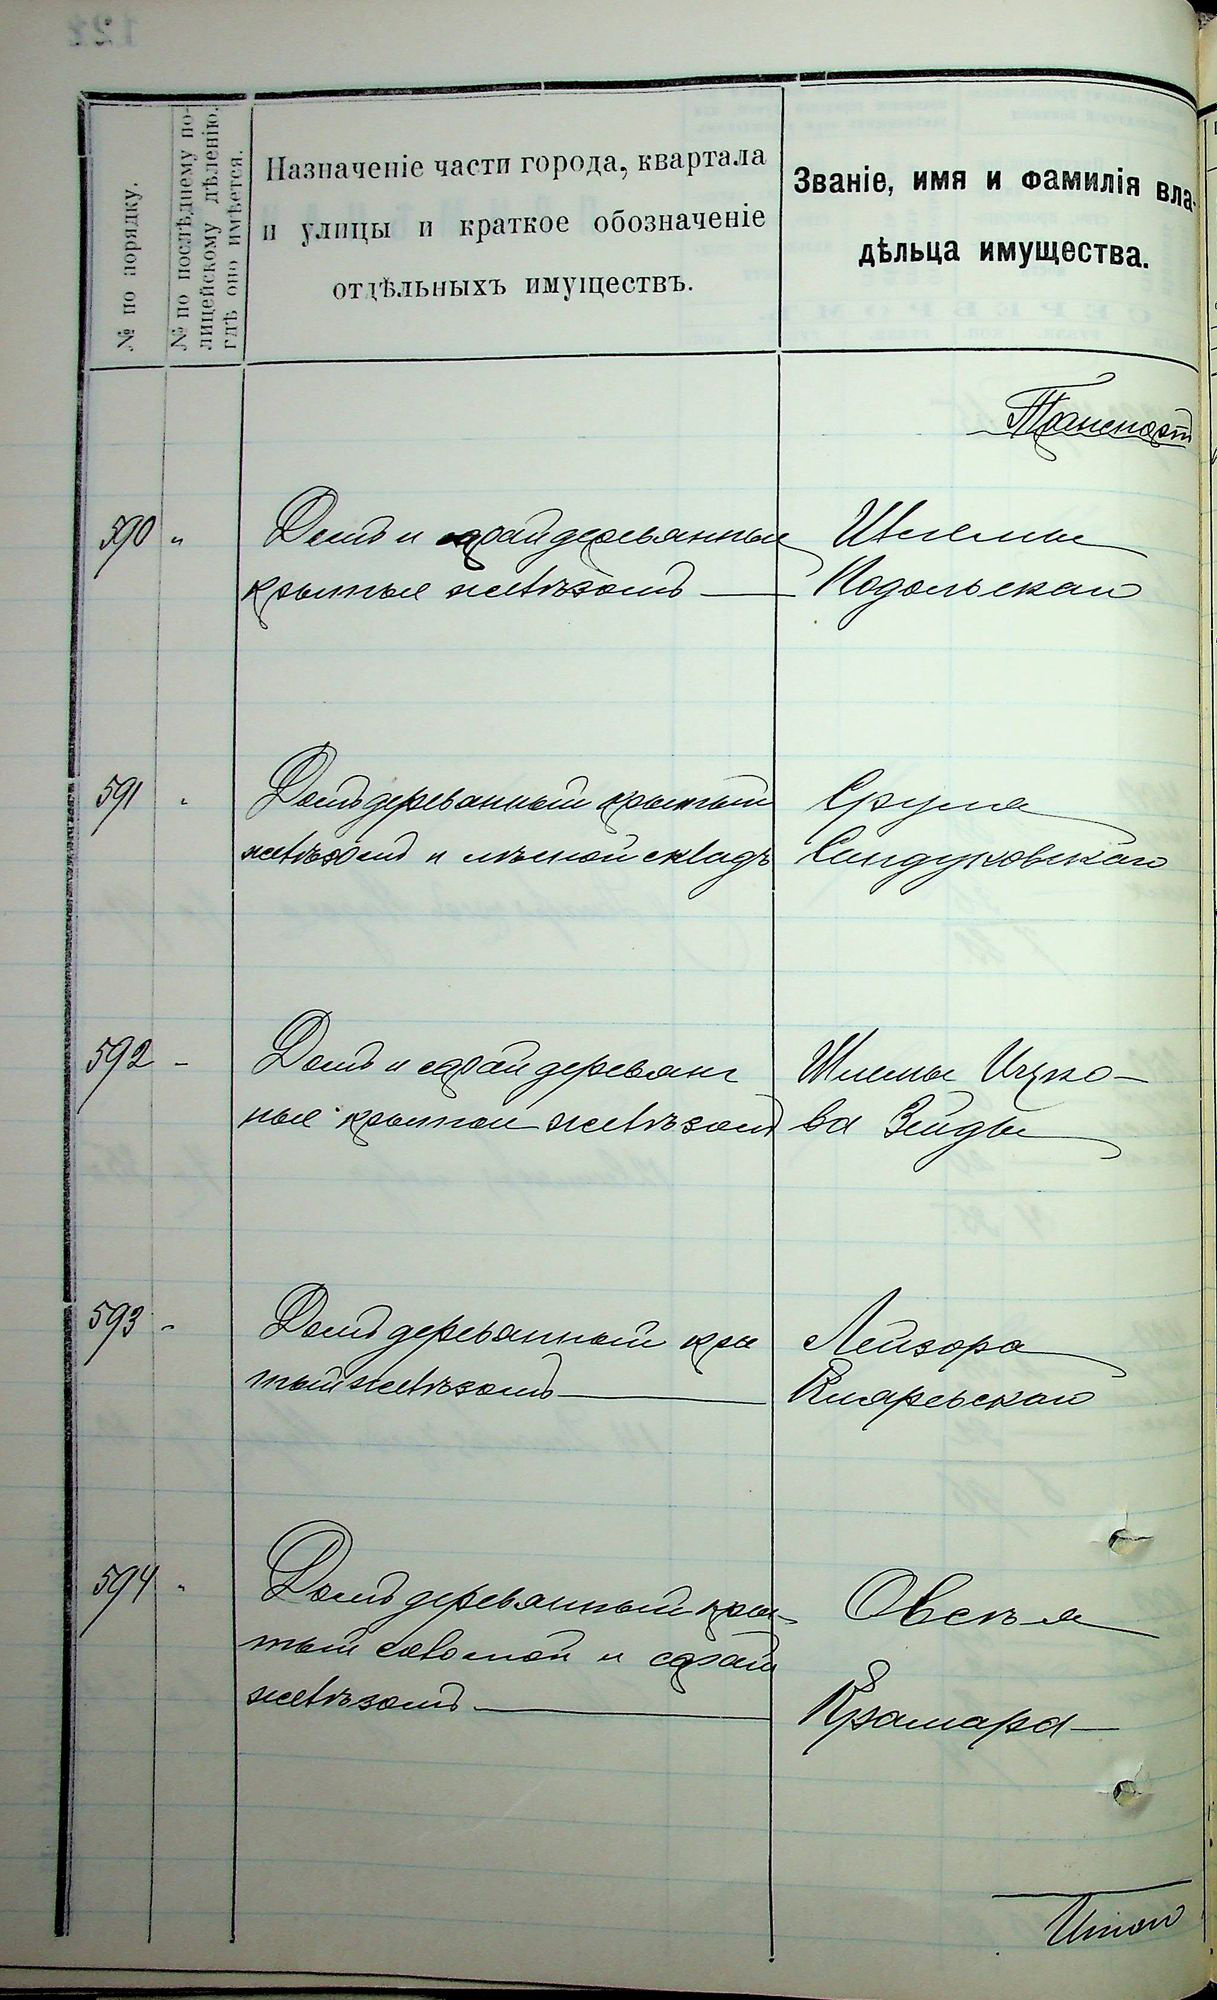 № по порядку.
№ по послѣднему по-
лицейскому дѣленію,
гдѣ оно имѣется.
Назначеніе части города, квартала
и улицы и краткое обозначеніе
отдѣльныхъ имуществъ.
Званіе, имя и фамилія вла-
дѣльца имущества.
Транспортъ
590 " Домъ и сарай деревянные
крытые желѣзомъ —
Шлемы
Подольскаго
591 " Домъ деревянный крытый
желѣзомъ и лѣсной складъ
Срула
Сандуковскаго
592 - Домъ и сарай деревян
ные крытые желѣзомъ
Шлемы Ицко-
ва Зейды
593 " Домъ деревянный кры
тый желѣзомъ —
Лейзора
594 " Домъ деревянный кры-
тый соломой и сарай
желѣзомъ —
Овсѣя
Крамара —
Итого